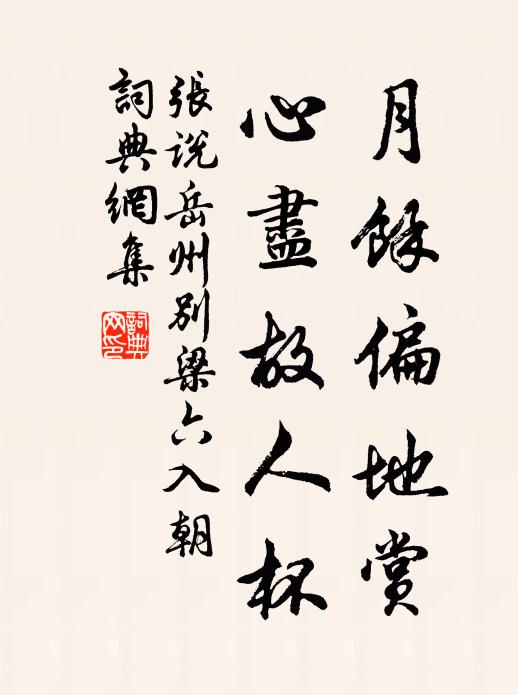 月餘偏地賞
心盡故人杯
張説岳州別梁六入朝
詞典網集
詞典
网印